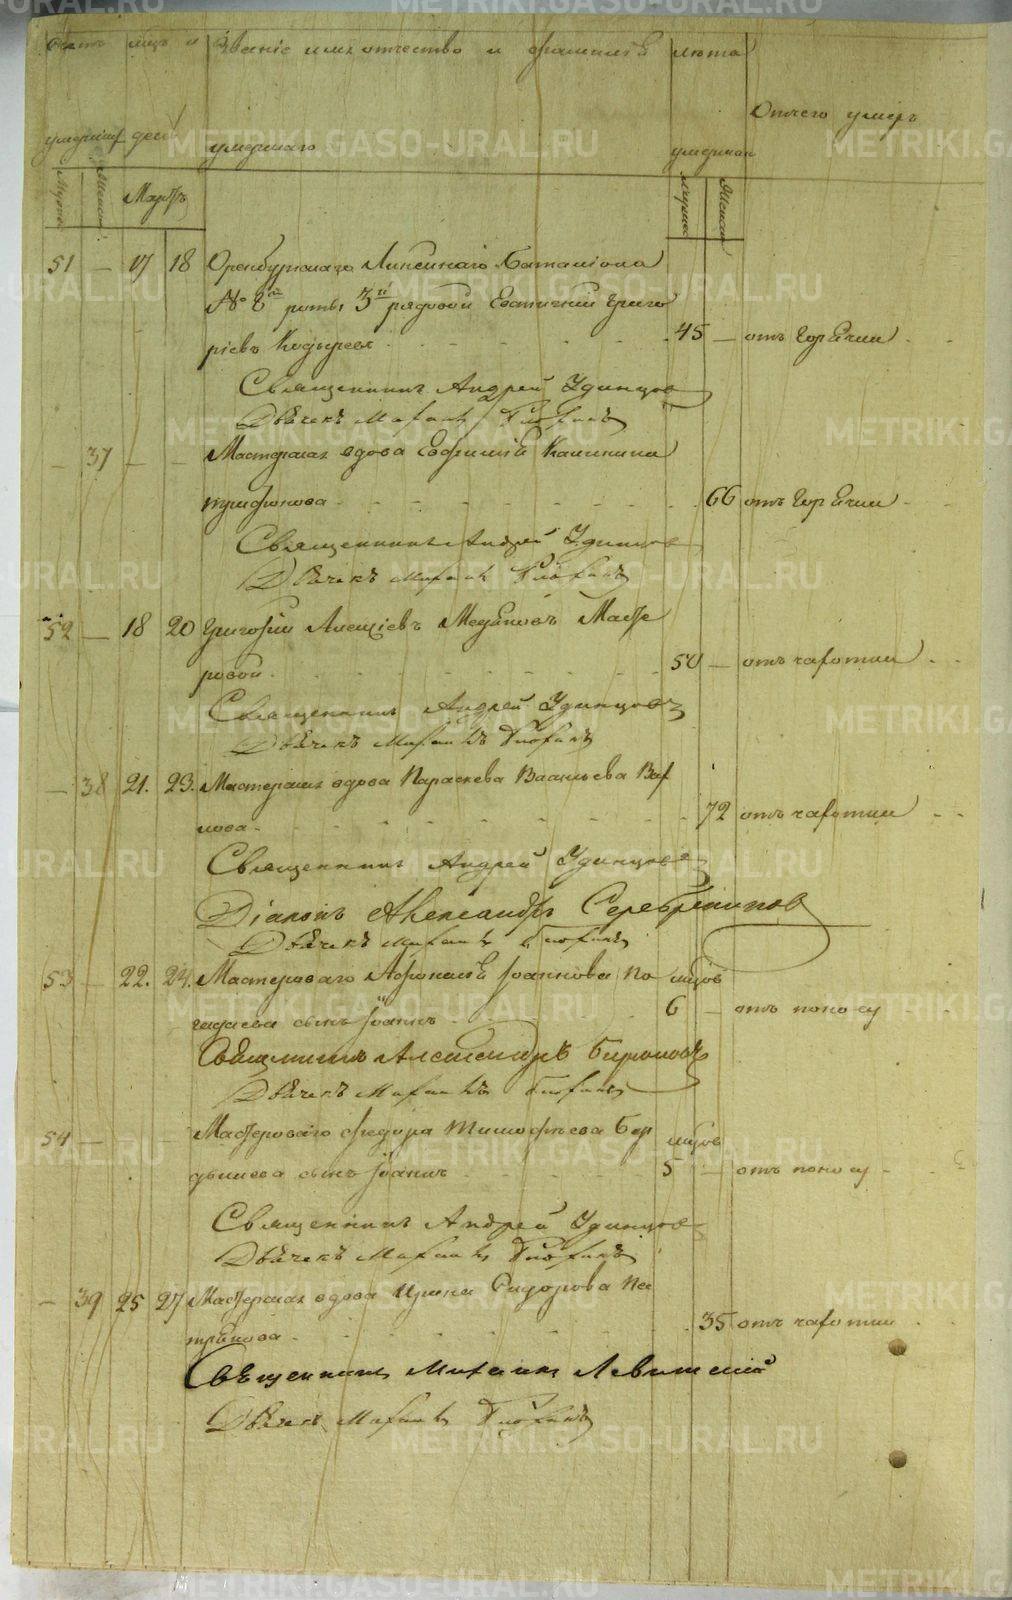 Счетъ мцъ и Званіе имя отчество и фамилія лѣта
Отчего умеръ
умершихъ день умершаго умерших
Мужск Женск Мартъ Мужск Женск
51 — 17 18 Оренбургскаго Линейнаго Баталіона
№ 8й роты 3й рядовой Евтихий Григо
ріевъ 45 — отъ Горячки
Священникъ Андрей Удинцовъ
Дьячекъ Михаилъ
— 37 — — Мастерская вдова Евфимія Калинина
66 отъ Горячки
Священникъ Андрей Удинцовъ
Дьячекъ Михаилъ
52 — 18 20 Григорий Алексіевъ Масте
ровой 50 — отъ чахотки
Священникъ Андрей Удинцовъ
Дьячекъ Михаилъ
— 38 21. 23. Мастерская вдова Параскева Васильева
72 отъ чахотки
Священникъ Андрей Удинцовъ
Діаконъ Александръ Серебрениковъ
Дьячекъ Михаилъ
53 — 22. 24. Мастероваго Афонасія Іоаннова По мцов
сынъ Іоаннъ 6 — отъ поносу
Священникъ Александръ
Дьячекъ Михаилъ
54 — — — Мастероваго Федора Тимофѣева Бер мцов
сынъ Іоаннъ 5 — отъ поносу
Священникъ Андрей Удинцовъ
Дьячекъ Михаилъ
— 39 25 27 Мастерская вдова Ирина Сидорова Пе
35 отъ чахотки
Священникъ Михаилъ Левитскій
Дьячекъ Михаилъ
METRIKI.GASO-URAL.RU